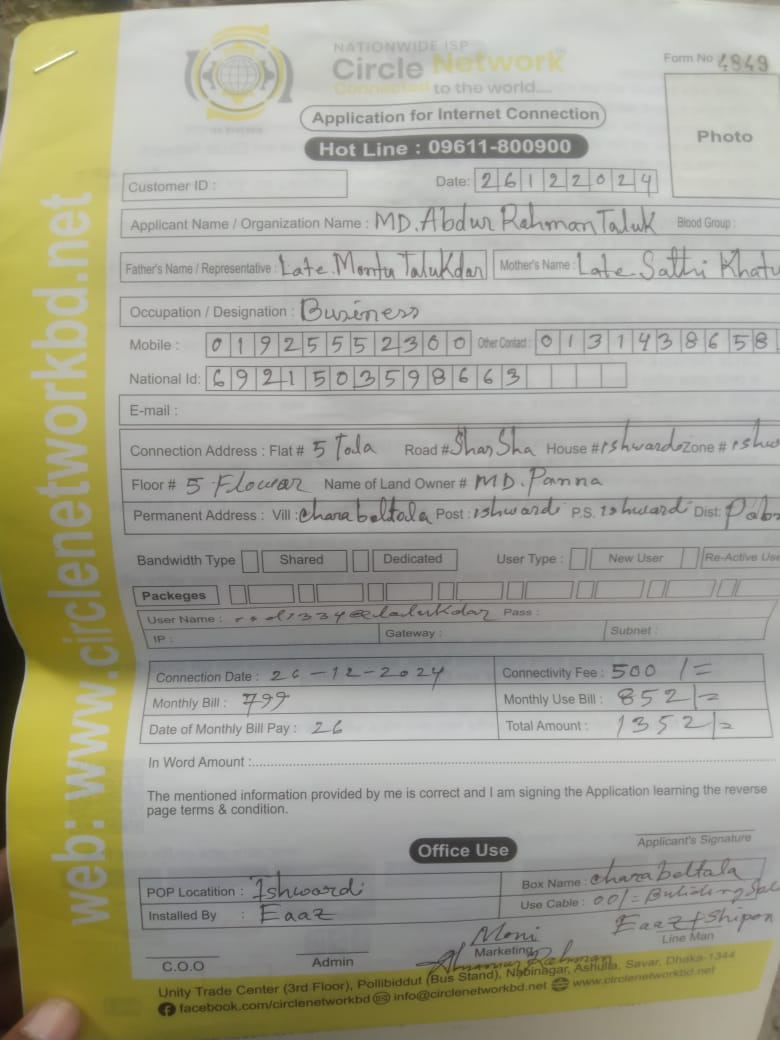 NATIONWIDE ISP
Circle Network
Connected to the world....
Form No 4849
Application for Internet Connection
Hot Line : 09611-800900
Photo
Customer ID :
Date: 26122024
Applicant Name / Organization Name : MD. Abdur Rahman Taluk Blood Group :
Father's Name / Representative : Late. Montu Talukdar Mother's Name : Late Sathi Khatu
Occupation / Designation : Business
Mobile : 01925552300 Other Contact : 0131438658
National Id: 6921503598663
E-mail :
Connection Address : Flat # 5 Tala Road # Shar Sha House # ishwardi Zone # ishw
Floor # 5 Flowar Name of Land Owner # MD. Panna
Permanent Address : Vill : charabaltala Post : ishwardi P.S. ishwardi Dist: Pab
Bandwidth Type Shared Dedicated User Type : New User Re-Active Use
Packeges
User Name : Pass :
IP : Gateway : Subnet :
Connection Date : 26-12-2024 Connectivity Fee : 500/=
Monthly Bill : 799 Monthly Use Bill : 852/=
Date of Monthly Bill Pay : 26 Total Amount : 1352/=
In Word Amount :
The mentioned information provided by me is correct and I am signing the Application learning the reverse
page terms & condition.
Applicant's Signature
Office Use
POP Locatition : Ishwardi Box Name : charabaltala
Installed By : Eaaz Use Cable : 001 =
Eaaz + Shipon
Moni
C.O.O Admin Marketing Line Man
Rahman
Unity Trade Center (3rd Floor), Pollibiddut (Bus Stand), Nabinagar, Ashulia, Savar, Dhaka-1344
facebook.com/circlenetworkbd info@circlenetworkbd.net www.circlenetworkbd.net
web: www.circlenetworkbd.net